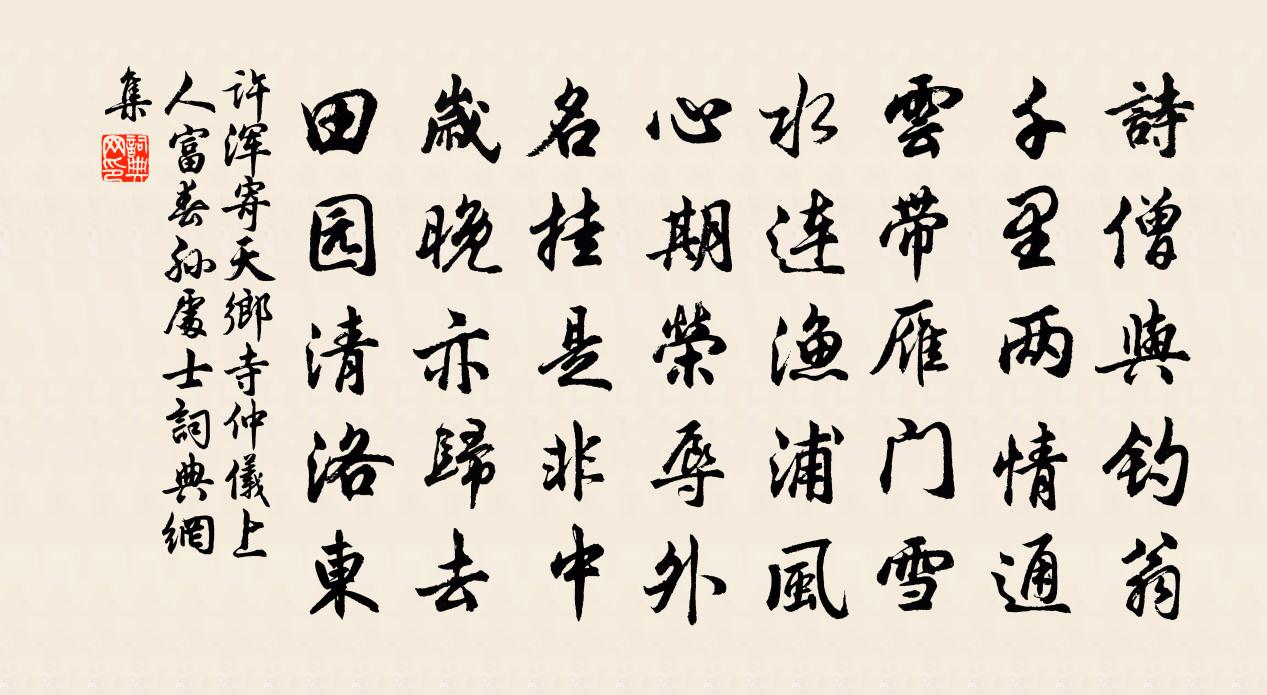 詩僧與釣翁
千里两情通
雲带雁门雪
水连渔浦風
心期榮辱外
名挂是非中
歲晚亦歸去
田园清洛東
许浑寄天鄉寺仲儀上
人富春孙處士詞典網
集
詞典
网印